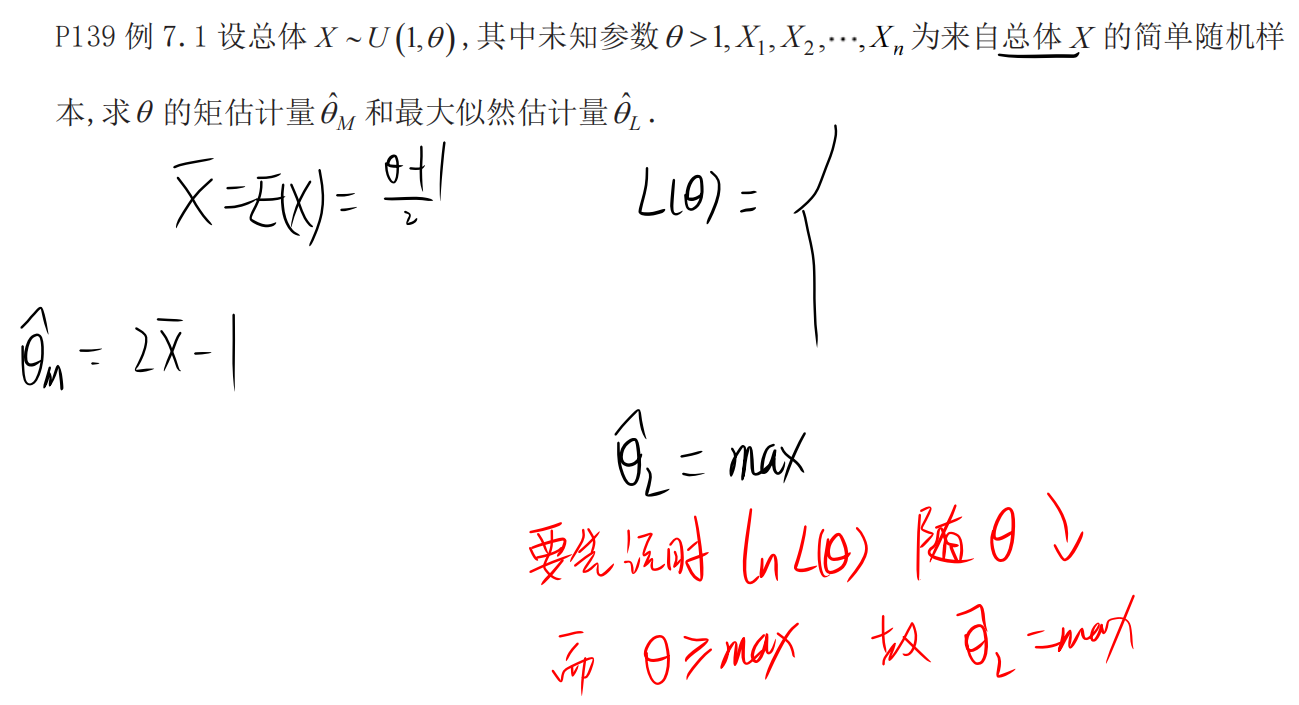 P139 例 7.1 设总体 X ~ U(1,θ),其中未知参数 θ > 1, X₁, X₂, ⋯, Xₙ 为来自总体 X 的简单随机样
本,求 θ 的矩估计量 θ̂_M 和最大似然估计量 θ̂_L .
X̄ = E(X) = (θ+1)/2
L(θ) = {
θ̂_M = 2X̄ - 1
θ̂_L = max
要先说明 ln L(θ) 随 θ ↘
而 θ ≥ max 故 θ̂_L = max